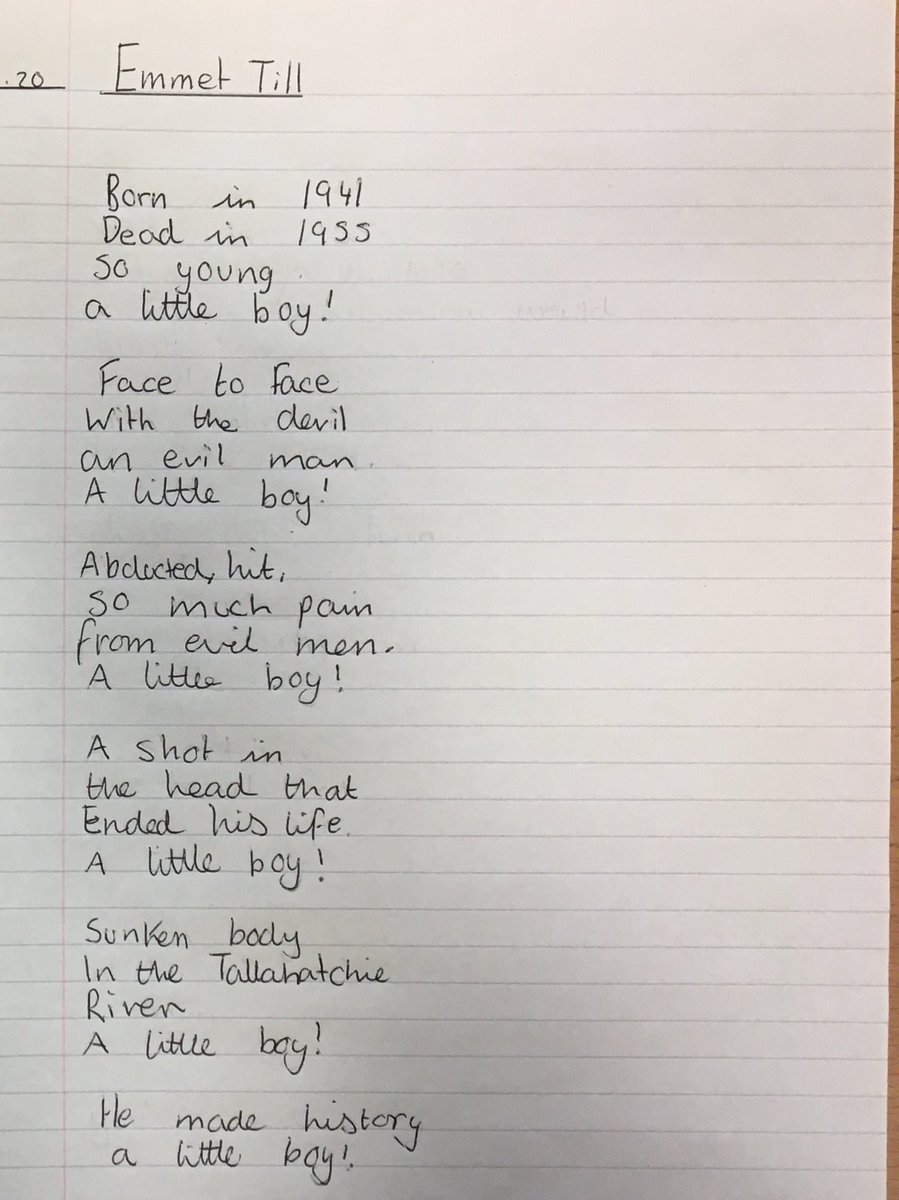 .20
Emmet Till
Born in 1941
Dead in 1955
So young
a little boy!
Face to face
With the devil
an evil man.
A little boy!
Abducted, hit,
so much pain
from evil men.
A little boy!
A shot in
the head that
Ended his life.
A little boy!
Sunken body
In the Tallahatchie
River
A little boy!
He made history
a little boy!